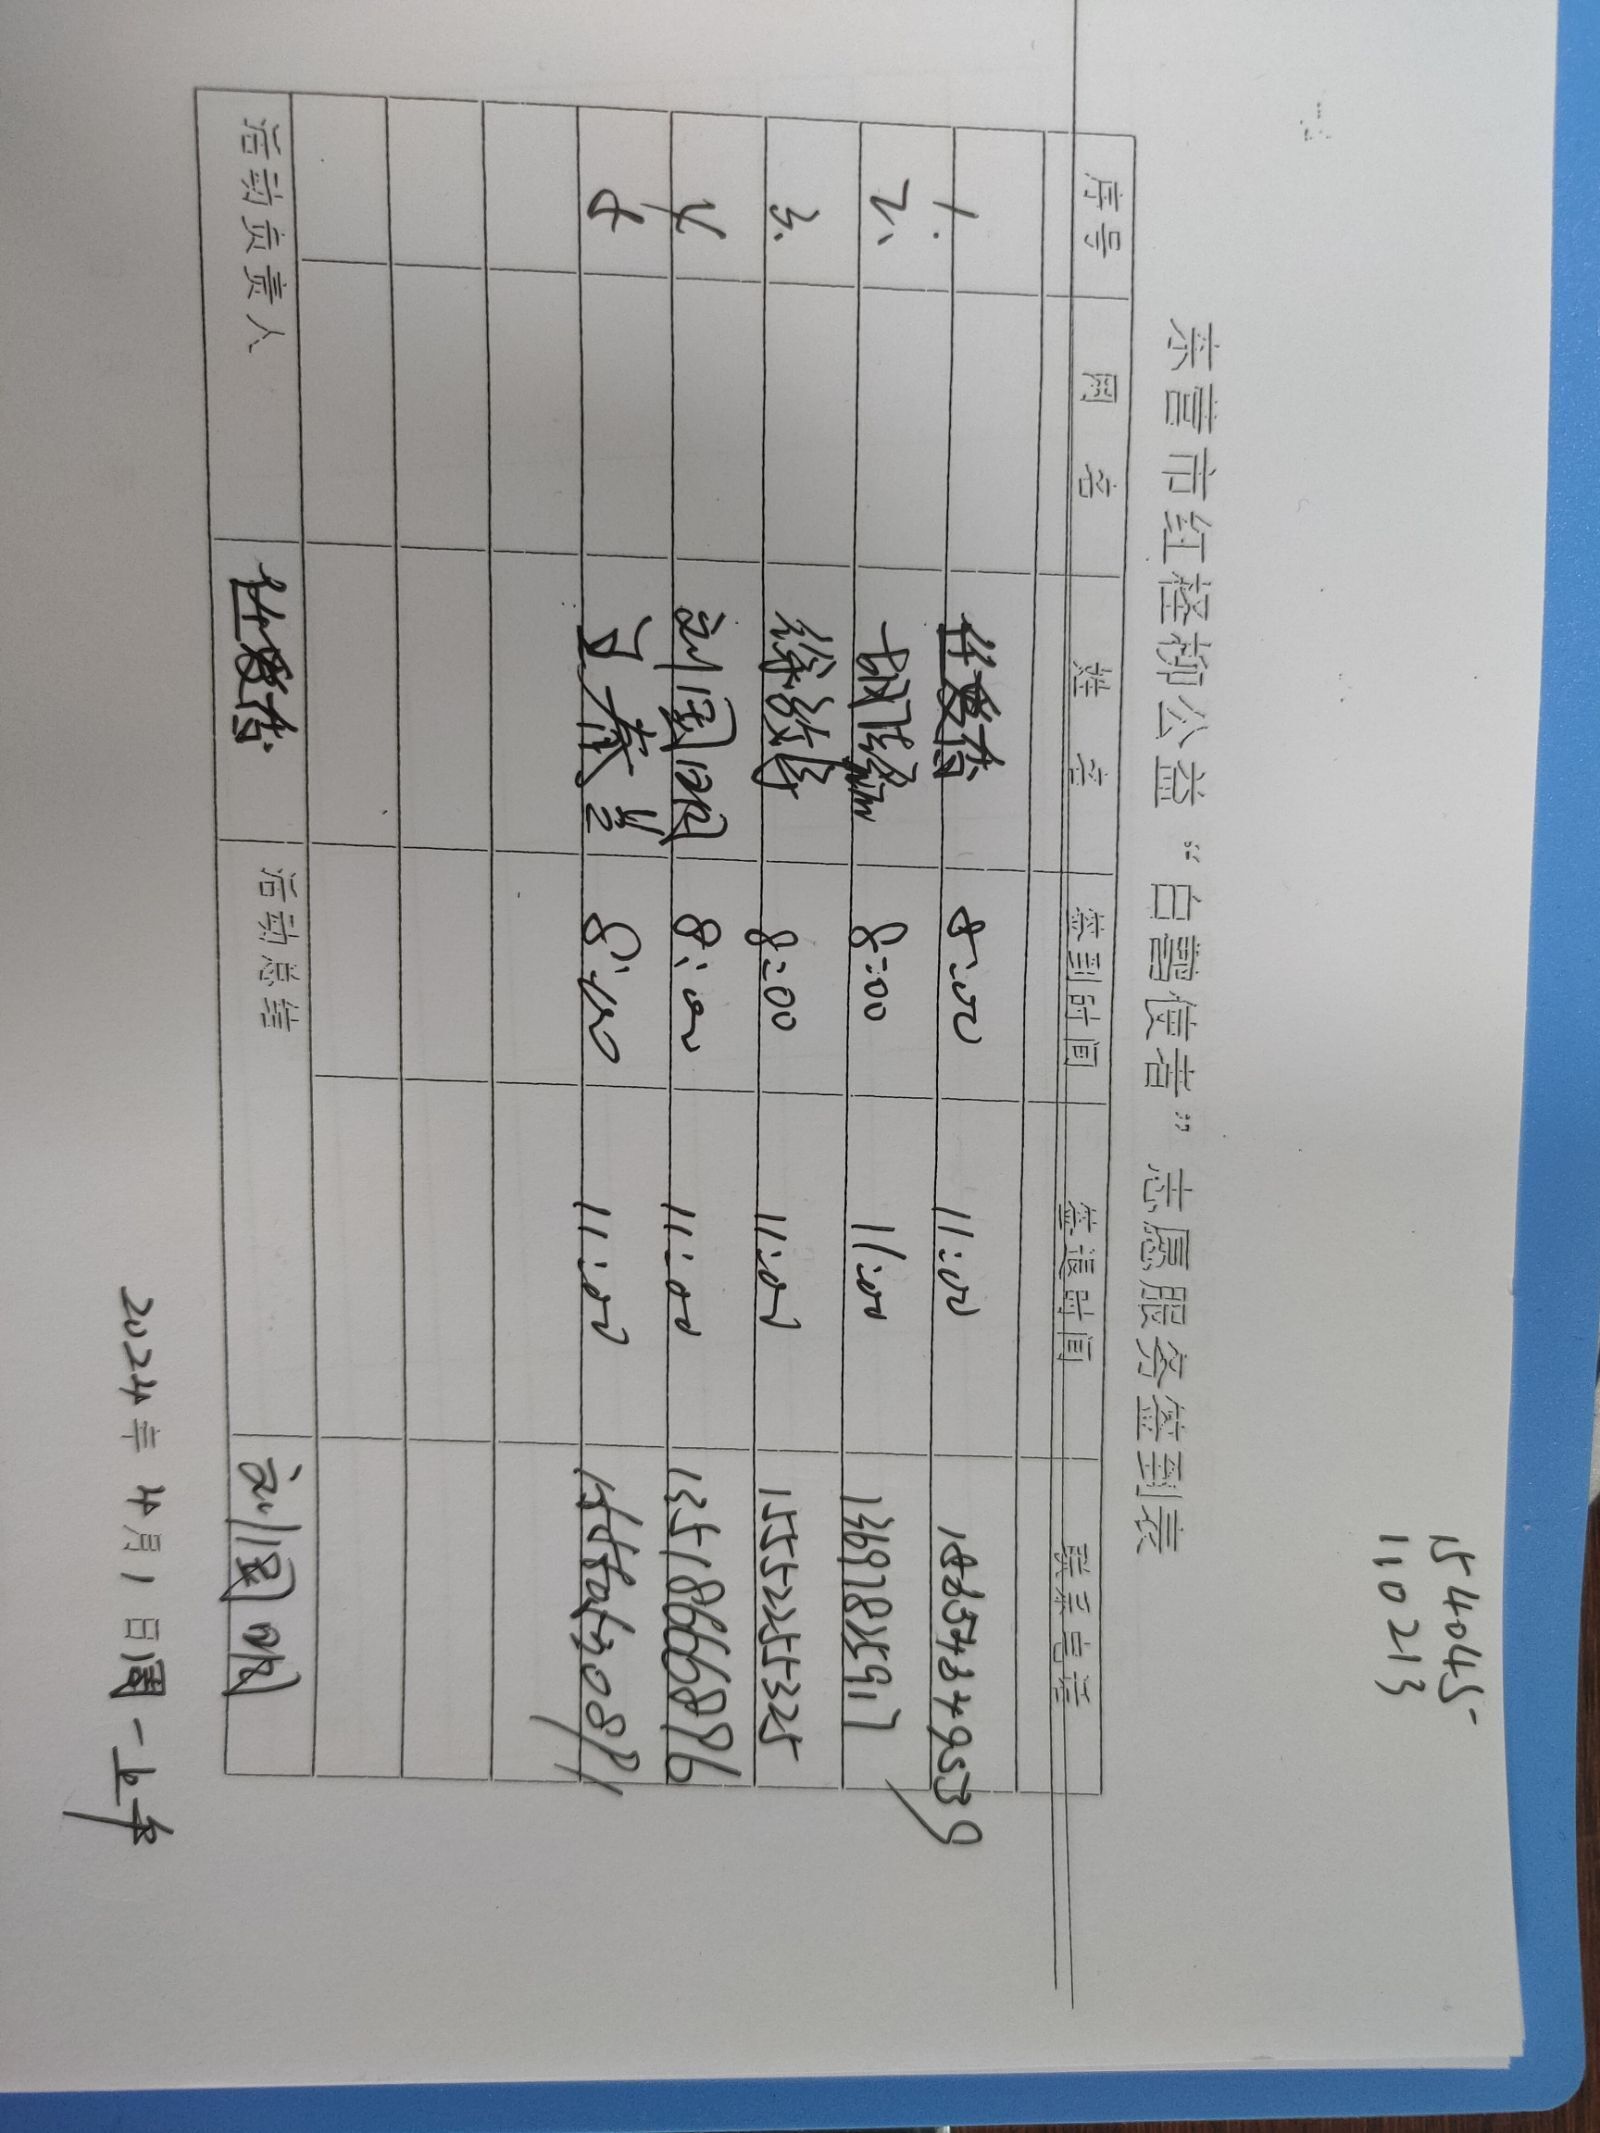 154045
110213
东营市红柽柳公益“白鹭使者”志愿服务签到表
序号 网名 姓名 签到时间 签退时间 联系电话
1. 任爱香 8:00 11:00
2. 胡 8:00 11:00 13697835917
3. 徐 8:00 11:00 15552255325
4 刘国明 8:00 11:00 13518668686
5 王春兰 8:00 11:00
活动负责人 任爱香 活动总结 刘国明
2024年4月1日周一上午